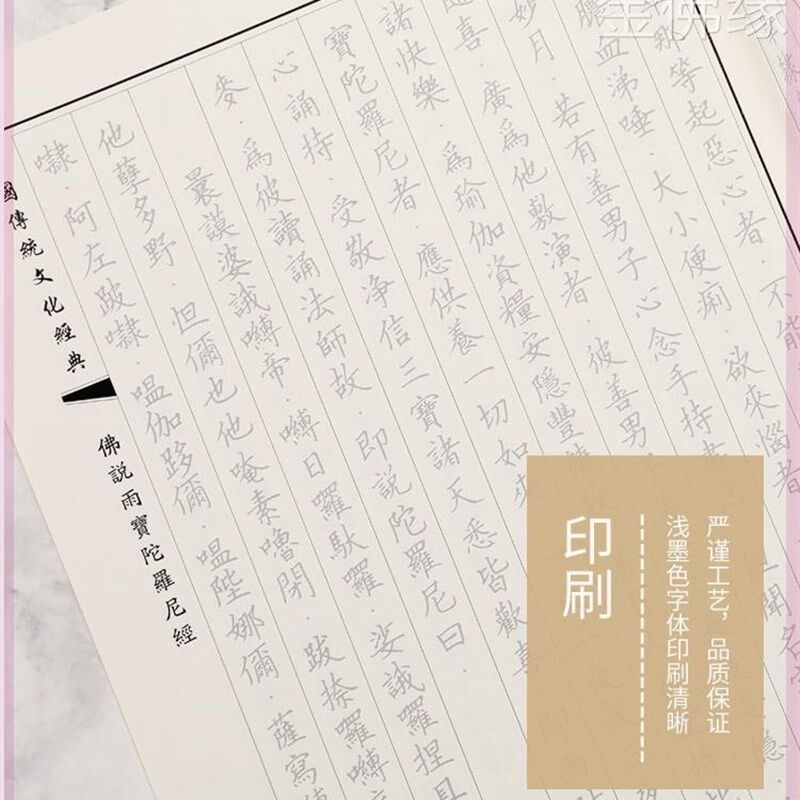 金佛缘
那等起惡心者.不能
膿血涕唾.大小便痢.欲來惱者
妙月.若有善男子心念手持
喜.廣為他敷演者.彼善男
諸快樂.為瑜伽資糧安隱豐
寶陀羅尼者.應供養一切如來
心誦持.受敬净信三寶諸天悉皆歡喜
麥.為彼讀誦法師故.即說陀羅尼曰.
曩謨婆誐嚩帝.嚩日羅馱羅.娑誐羅捏
他孽多野.怛儞也他唵素嚕閉.跋捺羅嚩
囉.阿左跛囉.嗢伽跢儞.嗢陛娜儞.薩寫
國傳統文化經典
佛說雨寶陀羅尼經
印刷
严谨工艺，品质保证
浅墨色字体印刷清晰